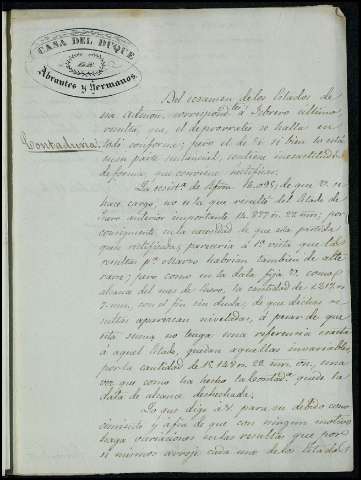 CASA DEL DUQUE
DE
Abrantes y Hermanos.
Contaduria
Del ecsamen de los Estados de
esa admon, correspondtes á Febrero ultimo,
resulta, que, el de prorrateo se halla en
todo conforme; pero el de si bien lo está
en su parte sustancial, contiene inecsactitudes
de forma, que conviene rectificar.
La ecsista de rvon 14,095; de que V. se
hace cargo, no es la que resulta del Estado de
Enero anterior importante 14.227 rs 22 mrs; por
consiguiente en la necesidad de que esta partida
quede rectificada, pareceria á 1a vista que las
resultas pa Marzo habrian tambien de alte-
rarse; pero como en la data fija V. como
alcance del mes de Enero, la cantidad de rs
7 mrs, con el fin sin duda, de que dichas re-
sultas aparezcan niveladas, á pesar de que
esta suma no tenga una referencia ecsacta
á aquel Estado, quedan aquellas invariables,
por la cantidad de rs 22 mrs vn, una
vez que como ha hecho la Contada quede la
data de alcance desechada.
Lo que digo á V. para su debido cono-
cimiento y á fin de que con ningun motivo
haga variaciones en las resultas que por
si mismos arroje cada uno de los Estados